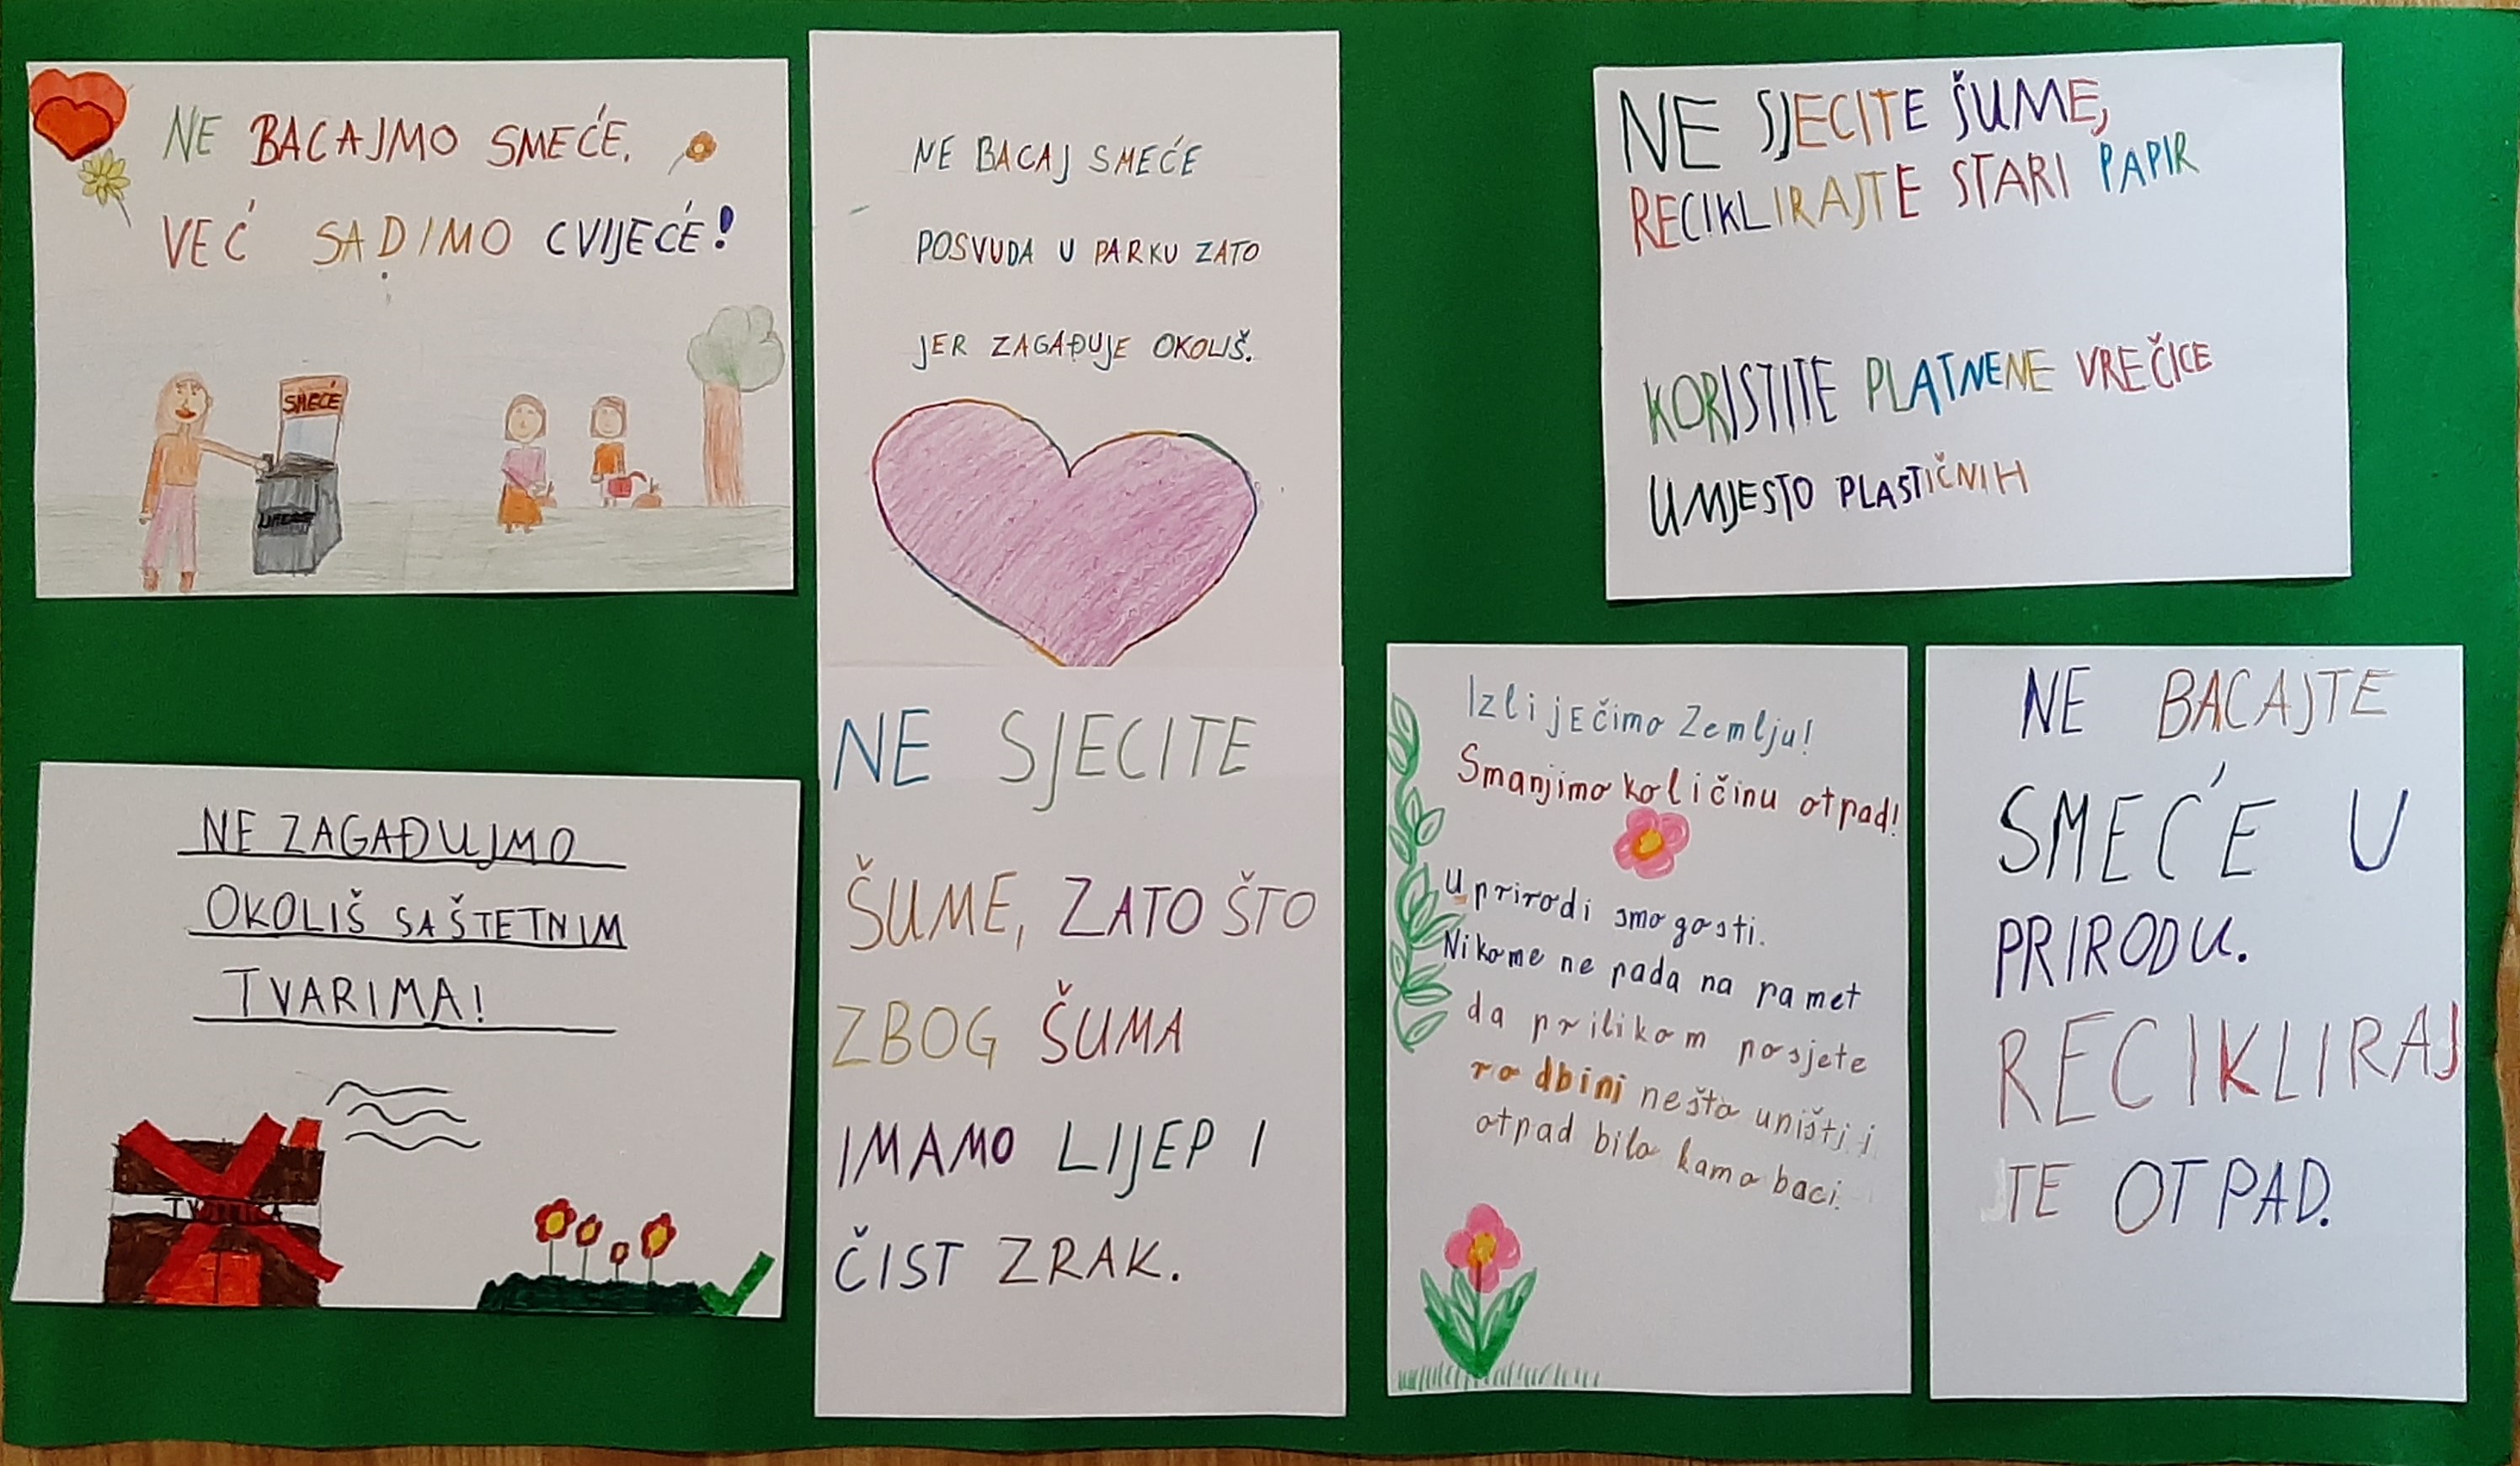 NE BACAJMO SMEĆE,
VEĆ SADIMO CVIJEĆE!
SMEĆE
NE BACAJ SMEĆE
POSVUDA U PARKU ZATO
JER ZAGAĐUJE OKOLIŠ.
NE SJECITE ŠUME,
RECIKLIRAJTE STARI PAPIR
KORISTITE PLATNENE VREČICE
UMJESTO PLASTIČNIH
NE ZAGAĐUJMO
OKOLIŠ SA ŠTETNIM
TVARIMA!
NE SJECITE
ŠUME, ZATO ŠTO
ZBOG ŠUMA
IMAMO LIJEP I
ČIST ZRAK.
Izliječimo Zemlju!
Smanjimo količinu otpad!
U prirodi smo gosti.
Nikome ne pada na pamet
da prilikom posjete
rodbini nešto uništi i
otpad bilo kamo baci.
NE BACAJTE
SMEĆE U
PRIRODU.
RECIKLIRAJ
TE OTPAD.